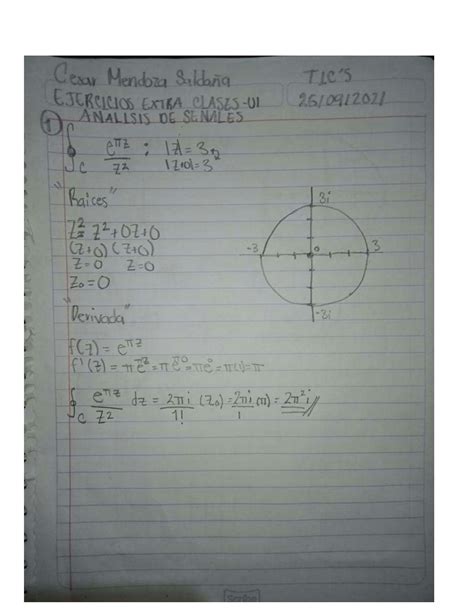 Cesar Mendoza Saldaña TIC'S
EJERCICIOS EXTRA CLASES-U1 25/09/2021
ANALISIS DE SEÑALES
1 ∮C e^πz / z² ; |z|=3
|z+0|=3
"Raices"
z²= z²+0z+0
(z+0)(z+0)
z=0 z=0
z₀=0
3i
-3 0 3
-3i
"Derivada"
f(z)= e^πz
f'(z)= πe^πz = πe^π0 = πe^0 = π(1)=π
∮C e^πz / z² dz = 2πi / 1! (z₀) = 2πi / 1 (π) = 2π²i //